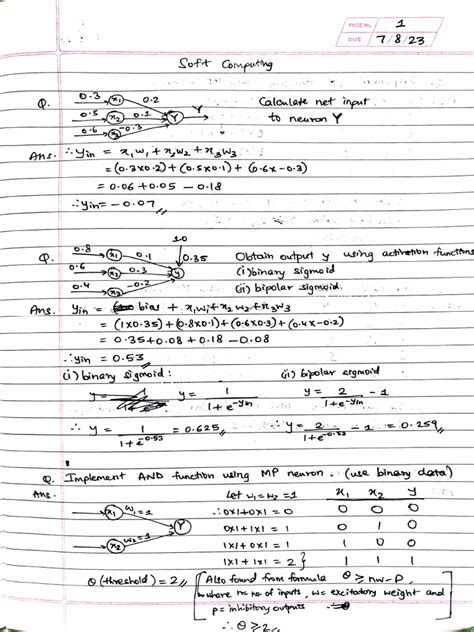 PAGE No. 1
DATE 7/8/23
Soft Computing
Q. 0.3 x₁ 0.2 Calculate net input
0.5 x₂ 0.1 Y Y to neuron Y
0.6 x₃ -0.3
Ans. ∴ Yin = x₁w₁ + x₂w₂ + x₃w₃
= (0.3x0.2) + (0.5x0.1) + (0.6x-0.3)
= 0.06 + 0.05 - 0.18
∴ Yin = -0.07
Q. 0.8 x₁ 0.1 0.35 Obtain output y using activation functions
0.6 x₂ 0.3 y (i) binary sigmoid
0.4 x₃ -0.2 (ii) bipolar sigmoid.
Ans. Yin = bias + x₁w₁ + x₂w₂ + x₃w₃
= (1x0.35) + (0.8x0.1) + (0.6x0.3) + (0.4x-0.2)
= 0.35 + 0.08 + 0.18 - 0.08
∴ Yin = 0.53
(i) binary sigmoid: (ii) bipolar sigmoid:
y = 1 / 1+e^-yin y = 2 / 1+e^-yin - 1
∴ y = 1 / 1+e^-0.53 = 0.625 ∴ y = 2 / 1+e^-0.53 - 1 = 0.259
Q. Implement AND function using MP neuron. (use binary data)
Ans. x₁ w₁=1 Y Let w₁ = w₂ = 1 x₁ x₂ y
∴ 0x1+0x1 = 0 0 0 0
0x1+1x1 = 1 0 1 0
x₂ w₂=1 1x1+0x1 = 1 1 0 0
1x1+1x1 = 2 1 1 1
θ (threshold) = 2 [Also found from formula θ ≥ nw-P,
where n= no. of inputs, w= excitatory weight and
p= inhibitory outputs
∴ θ ≥ 2